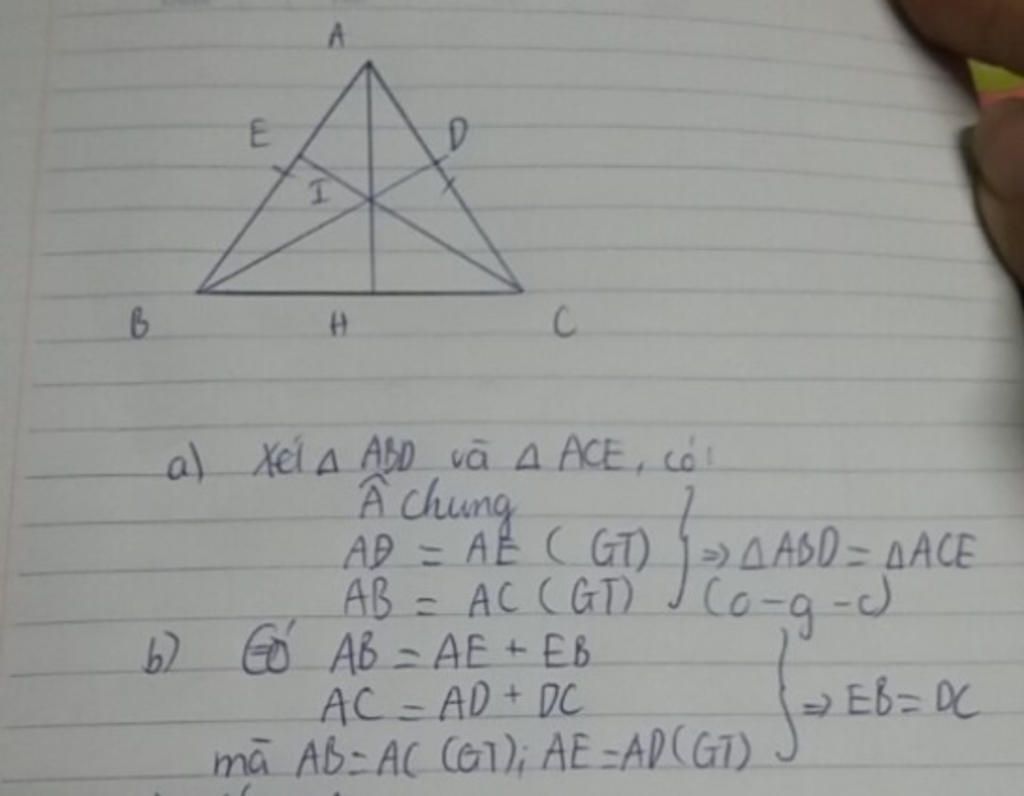 A
E
D
I
B
H
C
a) Xét Δ ABD và Δ ACE, có:
Â chung
AD = AE (GT)
AB = AC (GT)
} => Δ ABD = Δ ACE
(c-g-c)
b) Có AB = AE + EB
AC = AD + DC
mà AB = AC (GT); AE = AD (GT)
} => EB = DC